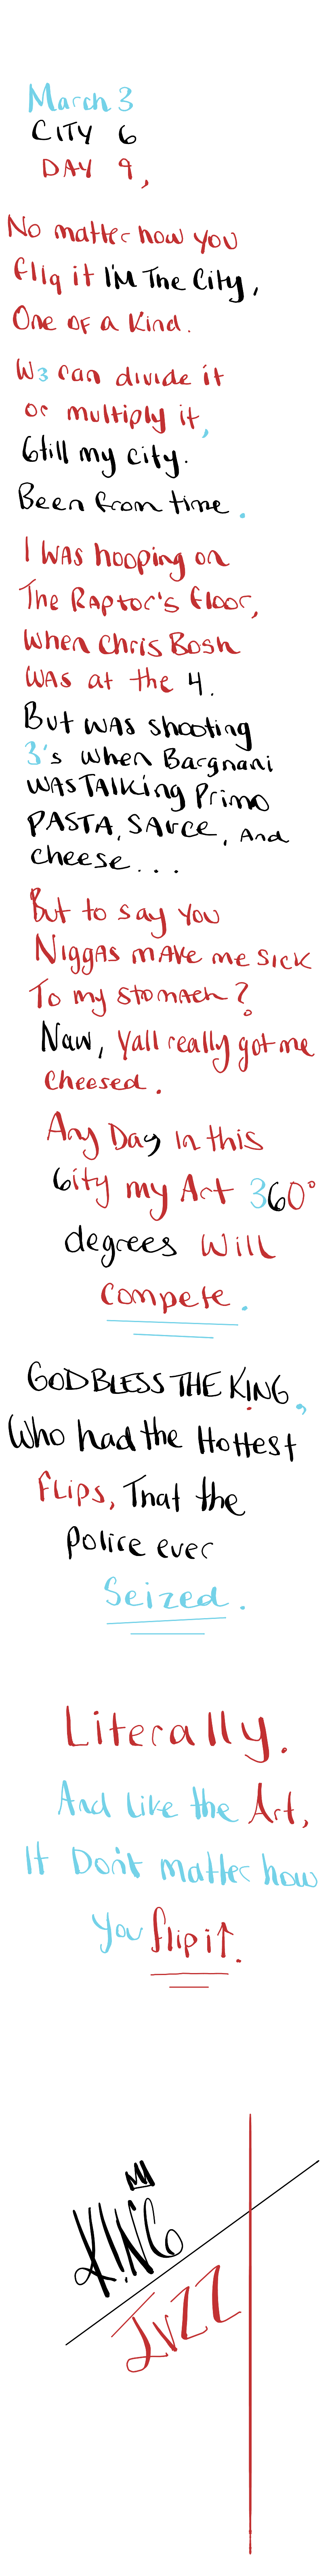 March 3
CITY 6
DAY 9,
No matter how you
fliq it I'M The City,
One OF a Kind.
W3 can divide it
or multiply it,
6till my city.
Been from time.
I WAS hooping on
The RAPTOR'S floor,
When Chris Bosh
WAS at the 4.
But WAS shooting
3's when Bargnani
WAS TALKING Primo
PASTA, SAUCE, And
cheese...
But to say you
NIGGAS MAKE me SICK
To my stomach?
Naw, yall really got me
Cheesed.
Any Day in this
6ity my Art 360°
degrees Will
compete.
GOD BLESS THE KING,
Who had the Hottest
FLIPS, That the
Police ever
Seized.
Literally.
And Like the Art,
It Don't matter how
you flip it.
K!NG
JvZZ